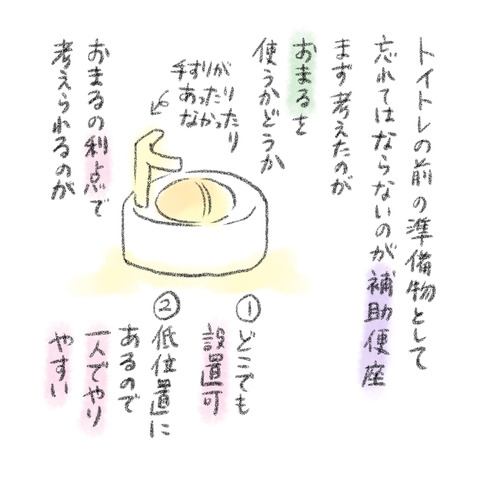 トイトレの前の準備物として
忘れてはならないのが補助便座
まず考えたのが
おまるを
使うかどうか
手すりが
あったり
なかったり
おまるの利点で
考えられるのが
①どこでも
設置可
②低位置に
あるので
一人でやり
やすい